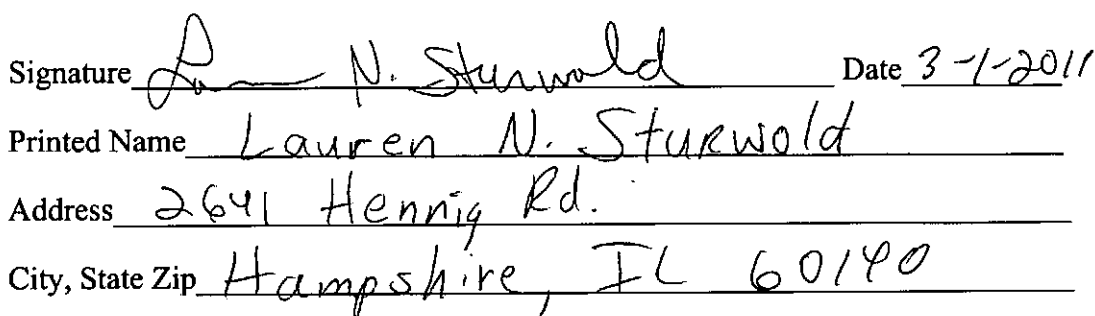 Signature Lauren N. Sturwold Date 3-1-2011
Printed Name Lauren N. Sturwold
Address 2641 Hennig Rd.
City, State Zip Hampshire, IL 60140